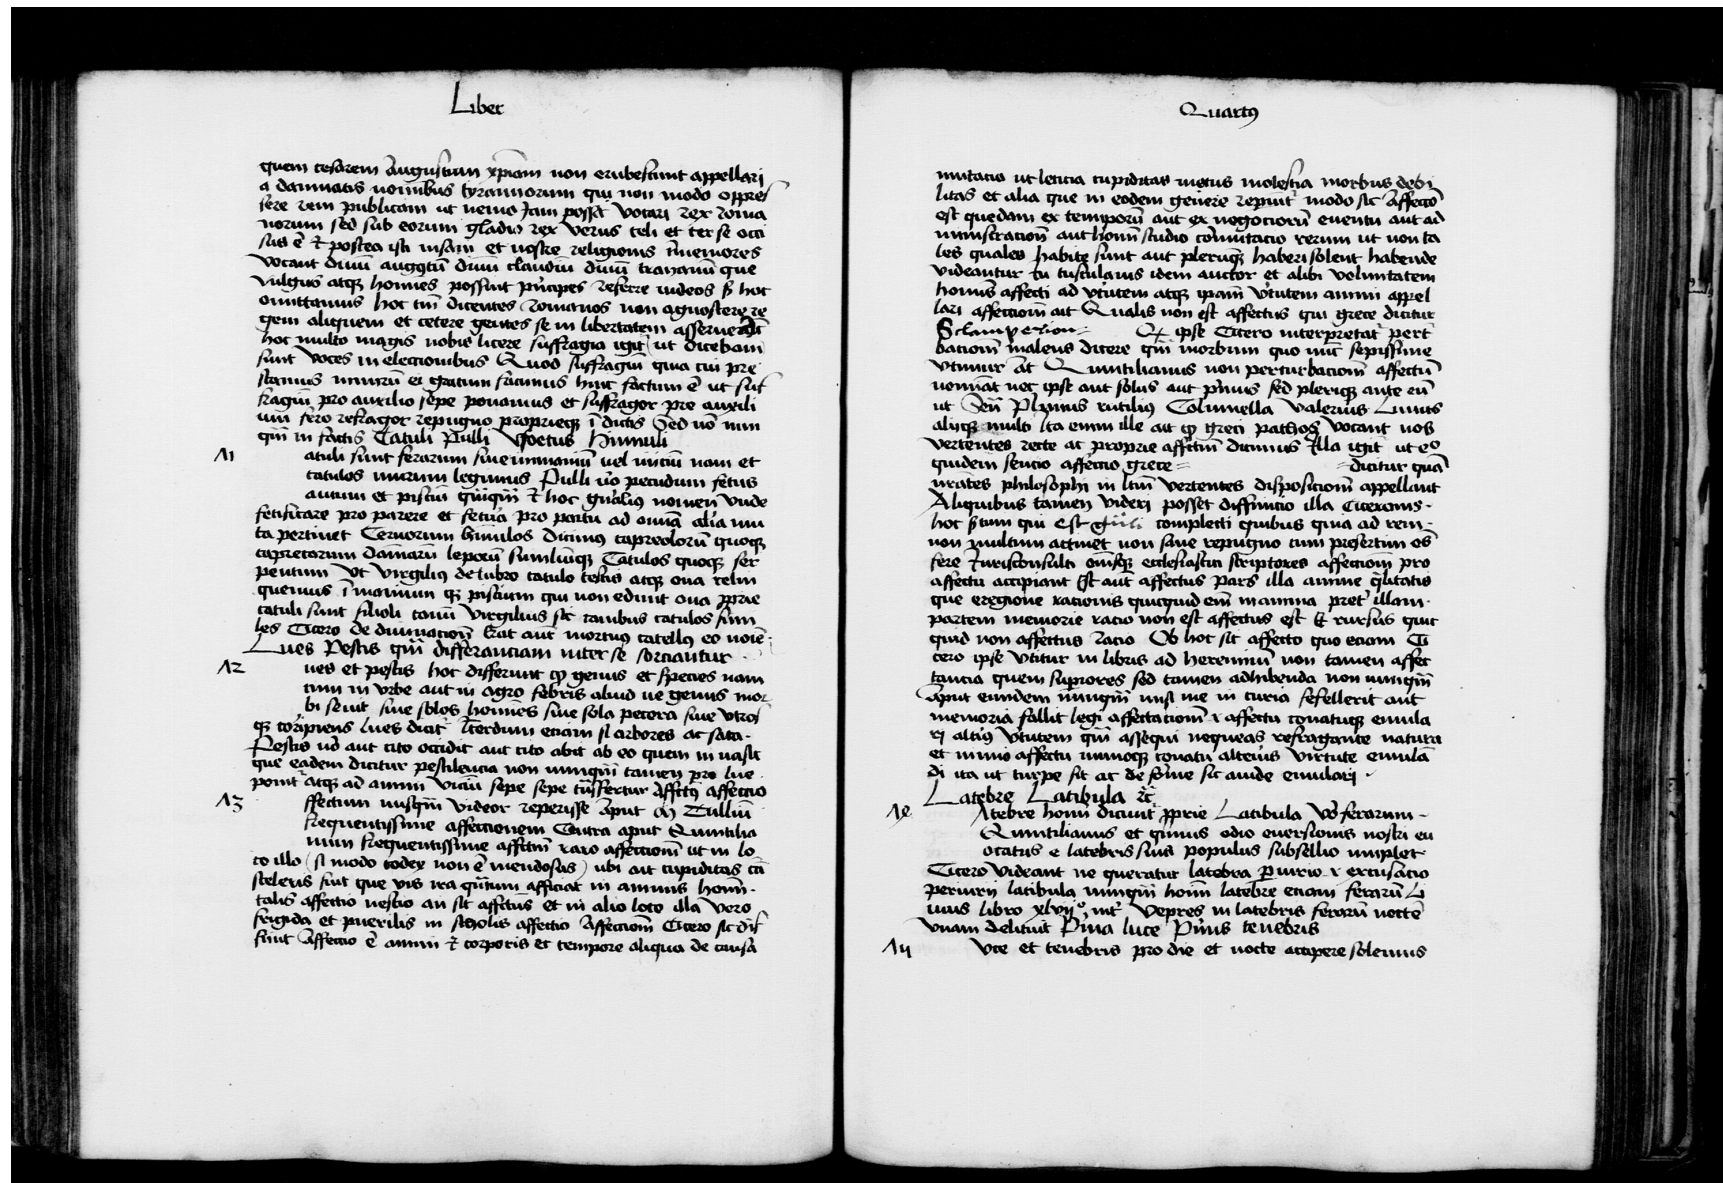 Liber
quem cesarem Augustum xp̄iani non erubescunt appellari
a damnatis nominibus tyrannorum qui non modo oppres
sere rem publicam ut nemo Jam posset vocari rex Roma
norum sed sub eorum gladio rex verus celi et terre occi
sus ē et postea isti insani et nostre religionis īmemores
vocant diuū augustū diuū claudiū diuū traianū que
vulgus atq; hoīnes possint pricipes referre inter deos sʒ hoc
omittamus hoc tm̄ dicentes romanos non agnoscere re
gem aliquem et cetere gentes se in libertatem asseruerūt
hoc multo magis nobis licere suffragia igit̄ (ut dicebam)
sunt voces in electionibus Quod suffragiū quia cui pre
stamus nimirū ei gratum facimus hinc factum ē ut suf
fragiū pro auxilio sepe ponamus et suffragor pre auxili
um fero refragor repugno proprieq; ī dictis Sed nō nun
qm̄ in factis Catuli Pulli Vfoetus Hinnuli
11 atuli sunt ferarum siue immaniū uel mitiū nam et
catulos murum legimus Pulli uō pecudum fetus
autem et pisciū quiqm̄ et hoc gn̄alius nomen unde
fetificare pro parere et fetura pro partu ad omnia alia mu
ta pertinet Ceruorum hinulos dicimus capreolorū quoq;
capretarum dāmarū leporū similiūq; Catulos quoq; ser
pentum ut virgilius delubro catulo testis atq; oua relin
quemus ī maninm q; piscium qui non edunt oua pprie
catuli sunt filioli canū virgilius sic canibus catulos simi
les Cicero de diuinacionē Erat aut mortuus catellus eo noīe
Lues Pestis qm̄ differanciam inter se sorciantur
12 ues et pestis hoc differunt qʒ genus et species nam
cum in urbe aut in agro febris aliud ue genus mor
bi seuit siue solos homīnes siue sola pecora siue utros
qʒ corripiens lues dicit̄ Iterdum etiam si arbores ac sata
Pestis uō aut cito occidit aut cito abit ab eo quem inuasit
que eadem dicitur pestilencia non nunqm̄ tamen pro lue
ponit̄ atq; ad animi vitiū sepe sepe tn̄sfertur Affctus affectio
13 ffectum nusqm̄ videor reperisse aput M Tulliū
frequentissime affectionem Contra aput Quintilia
num frequentissime affctm̄ raro affectionē ut in lo
co illo (si modo codex non ē mendosus) ubi ait cupiditas cū
sceleris sint que vis ira quātum afficiat in animis homn̄
talis affectio nescio an sit affctus et in alio loco illa vero
frigida et puerilis in scholis affectio Affectionē Cicero sic dif
finit Affectio ē animi et corporis ex tempore aliqua de causa
Quartus
mutatio ut leticia cupiditas metus molestia morbus debi
litas et alia que in eodem genere repiunt̄ modo sic Affectō
est quedam ex temporū aut ex negotiorū euentu aut ad
ministracionē aut homn̄ studio cōmutacio rerum ut non ta
les quales habite sunt aut plerūq; haberi solent habende
videantur In tusculanis idem auctor et alibi voluntatem
homīs affecti ad v̄tutem atq; ipam̄ v̄tutem animi appel
lari affectionē ait Qualis non est affectus qui grece dicitur
Sclampexion = Qʒ ipse Cicero interpretat̄ pert̄
bacionē maleus dicere qm̄ morbum quo nūc sepissime
vtimur At Quintilianus non perturbacionē affectū
nominat nec ipse aut solus aut primus sed pleriq; ante eū
ut Plynius rutilius Columella Valerius Liuius
alijq; multi Ita enim ille ait qʒ greci pathos vocant nos
vertentes recte ac proprie affctm̄ dicimus Illa igit̄ ut eo
quidem sencio affectio grece = = dicitur quā
nr̄ates philosophi in ltm̄ vertentes disposicionē appellant
Aliquibus tamen videri posset diffinitio illa Ciceronis
hoc complecti quibus quia ad rem
non multum actinet non sane repugno cum presertim os̄
fere iurisconsulti omīsq; ecclesiastici scriptores affectionē pro
affectu accipiant Est aut affectus pars illa anime q̄litatis
que eregione racionis quicquid em̄ in anima pret̄ illam
partem memorie racio non est affectus est Et rursus quic
quid non affectus racio Ob hoc sit affecto quo eciam Ci
cero ipse vtitur in libris ad herenniū non tamen affec
tancia quem superiores sed tamen adhibenda non nunqm̄
Aput eundem nunqm̄ nisi me in curia fefellerit aut
memoria fallit legi affectacionē r affectu conatuq; emula
ri altius v̄tutem qm̄ assequi nequeas refragante natura
et nimio affectu nimioq; conatu alterius virtute emulā
di ita ut turpe sit ac deforme sic auide emulari
Latebre Latibula rc̄
14 Atebre homn̄ dicunt̄ pprie Latibula vō ferarum
Quintilianus et gimus odio euersionis nostri eu
ocatus e latebris suis populus subsellio implet
Cicero videant ne queratur latebra piurio r excusatio
periurij latibula nunqm̄ homn̄ latebre eciam ferarū Li
uius libro xlvijo int̄ vepres in latebris ferarū noctē
vnam delituit Prima luce Primis tenebris
15 uce et tenebris pro die et nocte accipere solemus